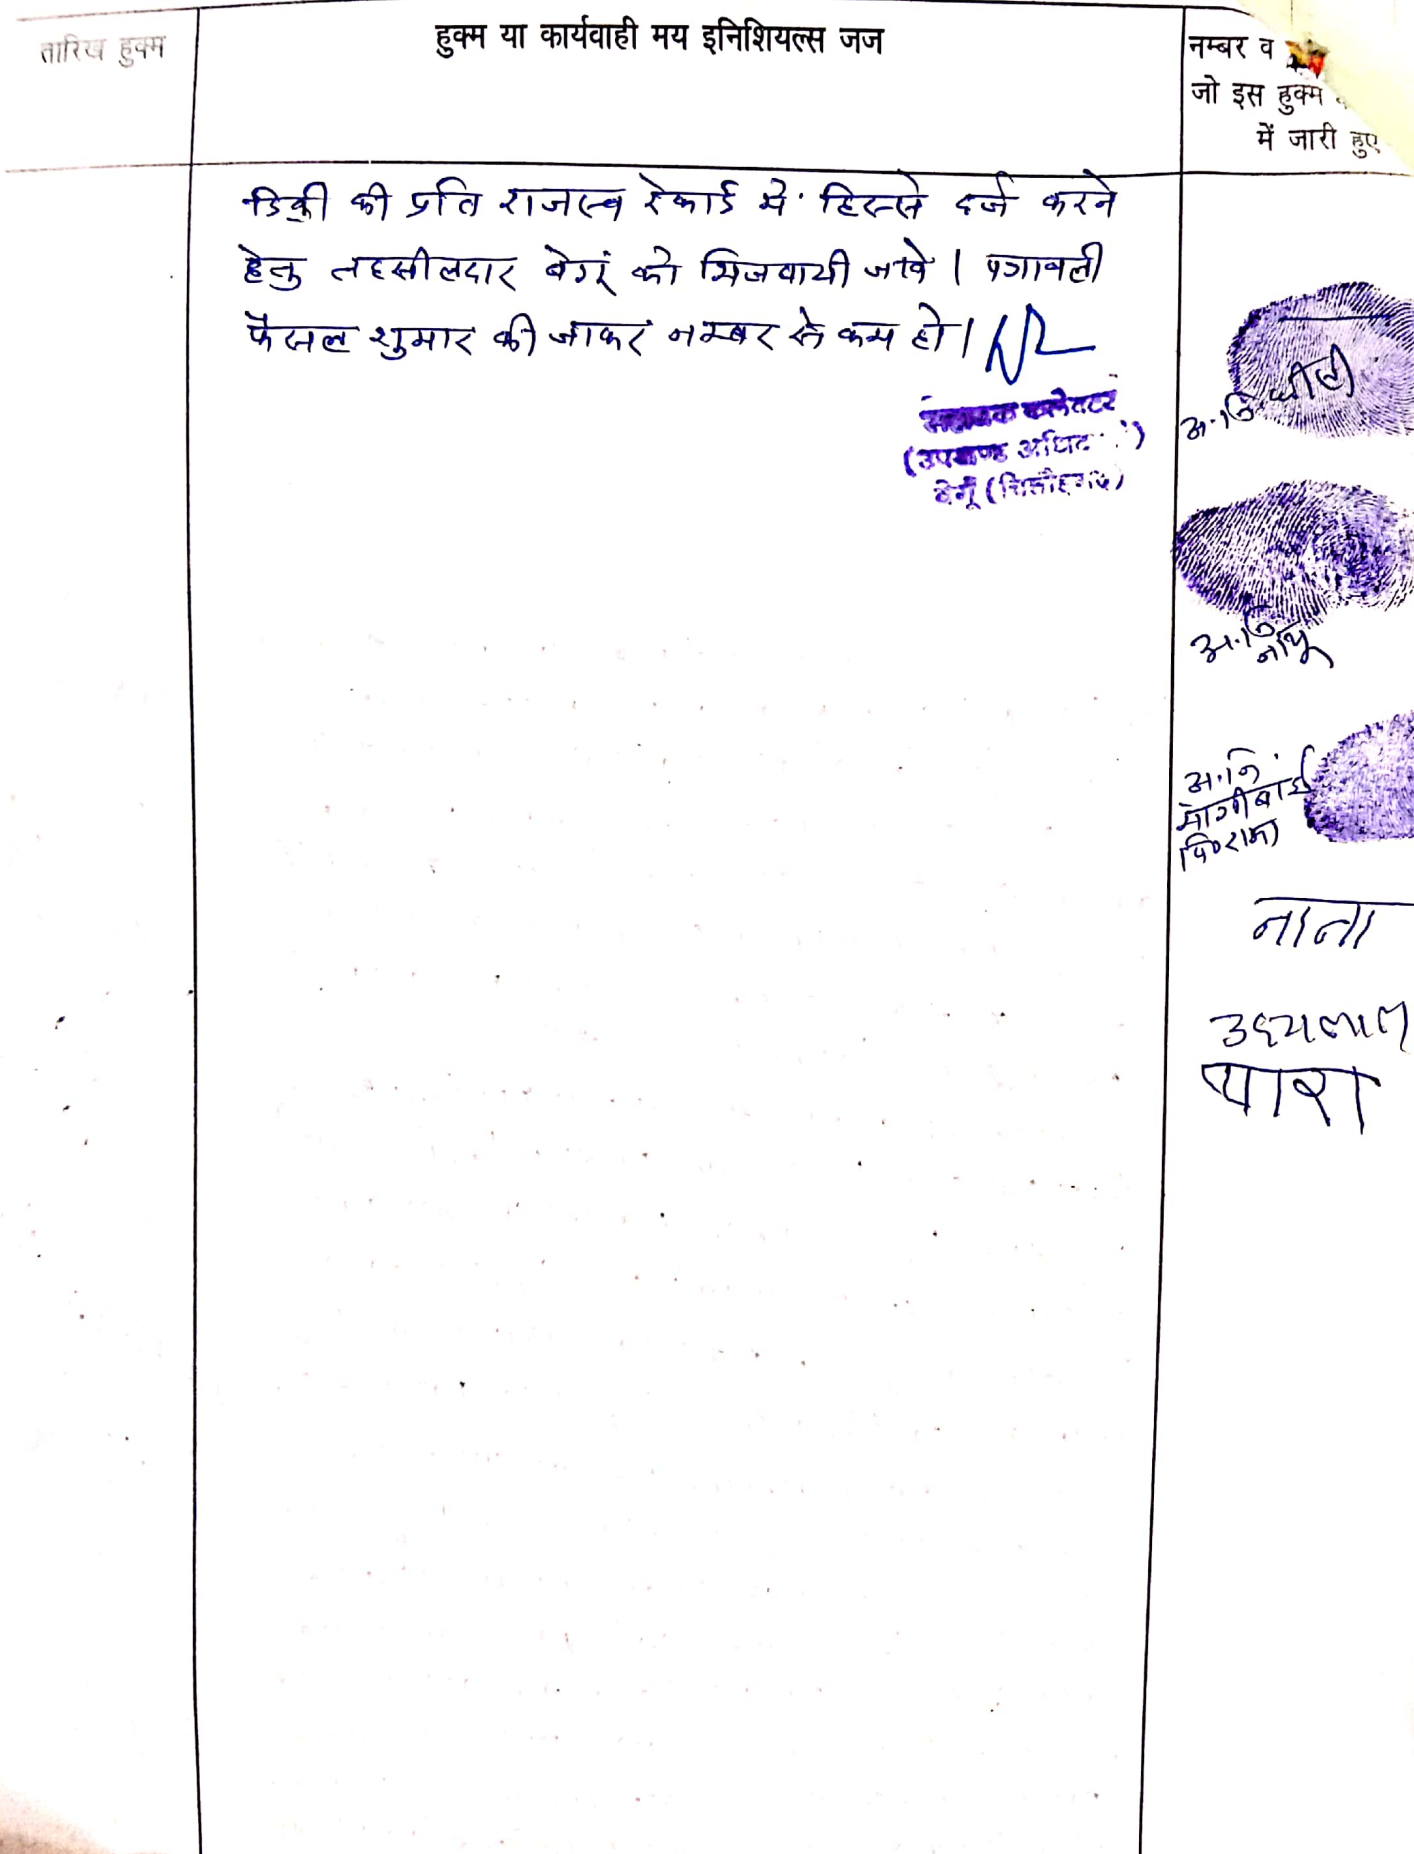 तारिख हुक्म
हुक्म या कार्यवाही मय इनिशियल्स जज
नम्बर व
जो इस हुक्म
में जारी हुए
डिक्री की प्रति राजस्व रेकार्ड में हिस्से दर्ज करने
हेतु तहसीलदार बेगूं को भिजवायी जावे । पत्रावली
फैसल शुमार की जाकर नम्बर से कम हो ।
सहायक कलेक्टर
(उपखण्ड अधि
बेगूँ (चित्तौड़गढ़)
अ.नि.
अ.नि.
नाथू
अ.नि.
मोगीबाई
नाना
उदयलाल
प्यारा